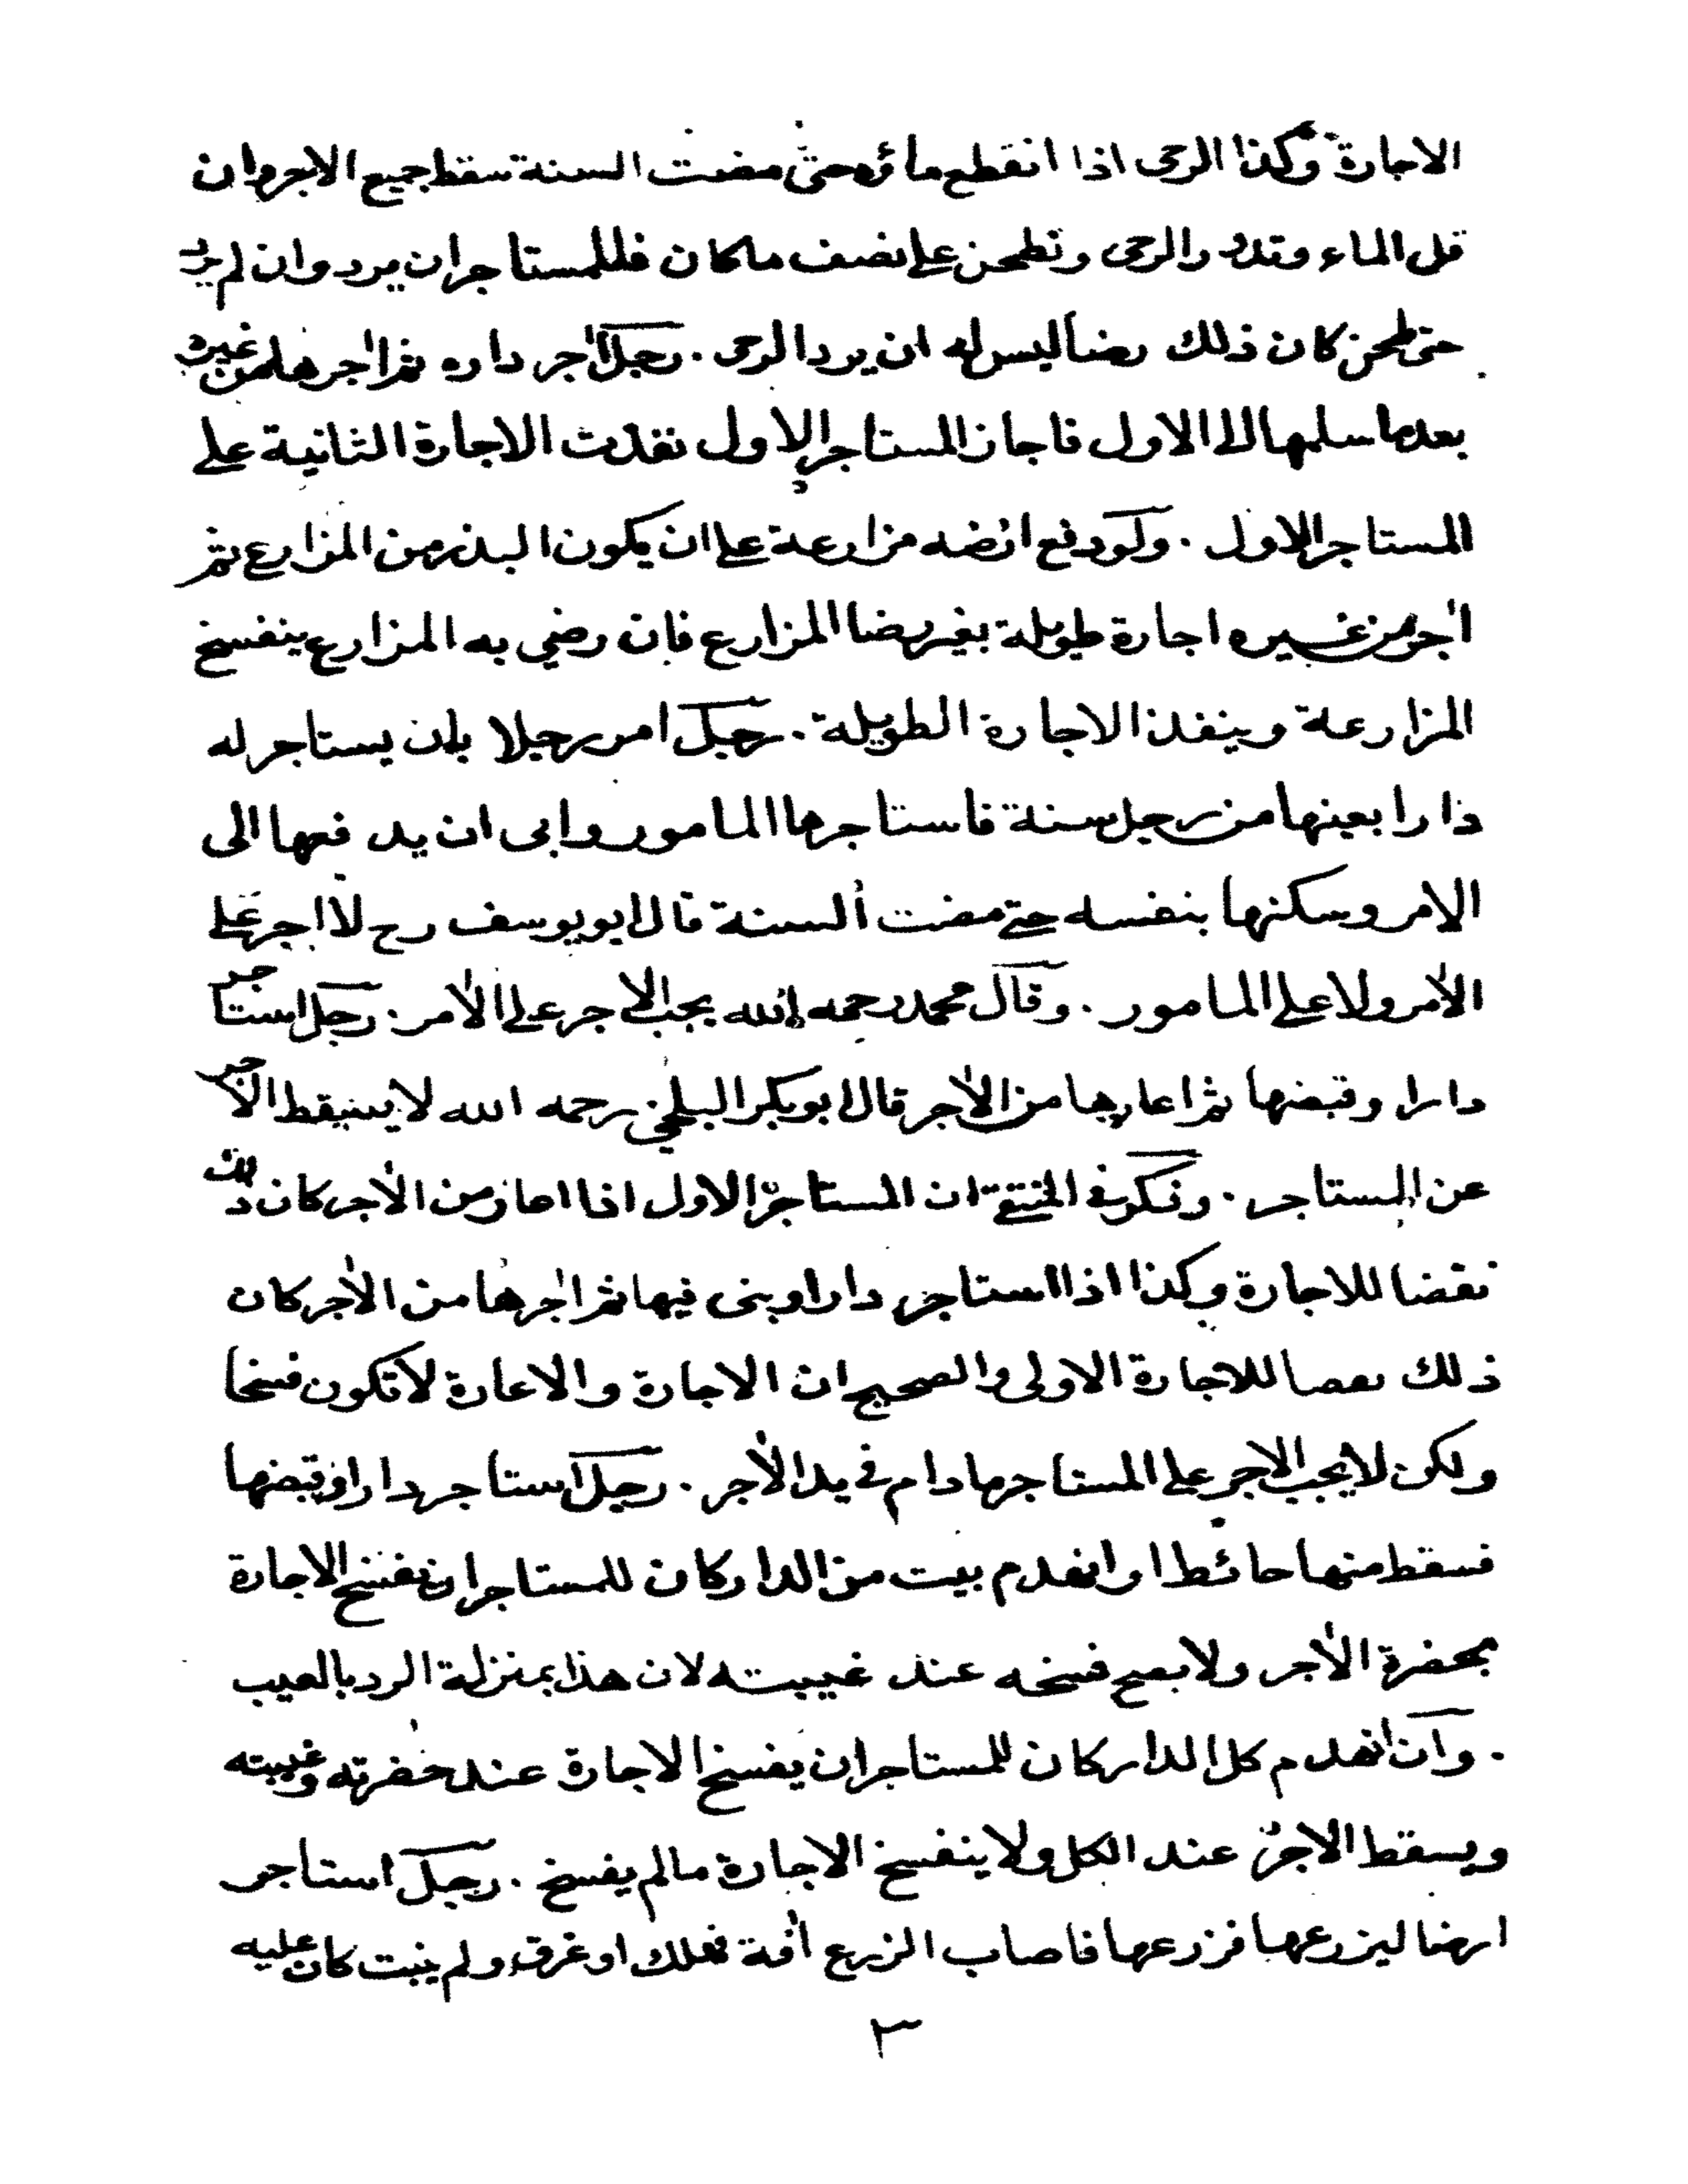 الاجارة وكذا الرحى اذا انقطع ماؤه حتى مضت السنة سقط جميع الاجر وان
قل الماء وتدور الرحى وتطحن على نصف ماكان فللمستاجر ان يرد وان لم يرد
حتى طحن كان ذلك رضا ليس له ان يرد الرحى . رجل اٰجر داره ثم اٰجرها من غيره
بعد ما سلمها الى الاول فاجاز المستاجر الاول نفذت الاجارة الثانية على
المستاجر الاول . ولو دفع ارضه مزارعة على ان يكون البذر من المزارع ثم
اٰجر من غيره اجارة طويلة بغير رضا المزارع فان رضي به المزارع ينفسخ
المزارعة وينفذ الاجارة الطويلة . رجل امر رجلا بان يستاجر له
دارا بعينها من رجل سنة فاستاجرها المامور وابى ان يدفعها الى
الامر وسكنها بنفسه حتى مضت السنة قال ابو يوسف رح لا اجر على
الاٰمر ولا على المامور . وقال محمد رحمه الله يجب الاجر على الاٰمر . رجل استاجر
دارا وقبضها ثم اعارها من الاٰجر قال ابو بكر البلخي رحمه الله لا يسقط الاجر
عن المستاجر . وذكر في المنتقى ان المستاجر الاول اذا اعار من الاٰجر كان ذلك
نقضا للاجارة وكذا اذا استاجر دارا وبنى فيها ثم اٰجرها من الاٰجر كان
ذلك نقضا للاجارة الاولى والصحيح ان الاجارة والاعارة لا تكون فسخا
ولكن لا يجب الاجر على المستاجر ما دام في يد الاٰجر . رجل استاجر دارا وقبضها
فسقط منها حائط او انهدم بيت من الدار كان للمستاجر ان يفسخ الاجارة
بمحضرة الاٰجر ولا يصح فسخه عند غيبته لان هذا بمنزلة الرد بالعيب
. وان انهدم كل الدار كان للمستاجر ان يفسخ الاجارة عند حضرته وغيبته
ويسقط الاجر عند الكل ولا ينفسخ الاجارة مالم يفسخ . رجل استاجر
ارضا ليزرعها فزرعها فاصاب الزرع اٰفة فهلك او غرق ولم ينبت كان عليه
٣